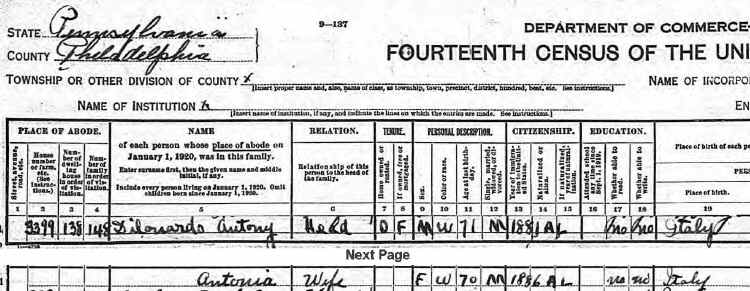 9-137
STATE Pennsylvania
DEPARTMENT OF COMMERCE-
COUNTY Philadelphia
FOURTEENTH CENSUS OF THE UNI
TOWNSHIP OR OTHER DIVISION OF COUNTY x
NAME OF INCORPO
[Insert proper name and, also, name of class, as township, town, precinct, district, hundred, beat, etc. See instructions.]
NAME OF INSTITUTION x
EN
[Insert name of institution, if any, and indicate the lines on which the entries are made. See instructions.]
PLACE OF ABODE. NAME RELATION. TENURE. PERSONAL DESCRIPTION. CITIZENSHIP. EDUCATION.
of each person whose place of abode on
January 1, 1920, was in this family.
Enter surname first, then the given name and middle
initial, if any.
Include every person living on January 1, 1920. Omit
children born since January 1, 1920.
Relationship of this
person to the head of
the family.
Place of birth of each pers
PERS
Place of birth.
Street, avenue, road, etc.
House number or farm, etc. (See instructions.)
Number of dwelling house in order of visitation.
Number of family in order of visitation.
Home owned or rented.
If owned, free or mortgaged.
Sex.
Color or race.
Age at last birthday.
Single, married, widowed, or divorced.
Year of immigration to the United States.
Naturalized or alien.
If naturalized, year of naturalization.
Attended school any time since Sept. 1, 1919.
Whether able to read.
Whether able to write.
1 2 3 4 5 6 7 8 9 10 11 12 13 14 15 16 17 18 19
2399 138 148 Dileonardo Antony Head O F M W 71 M 1881 AL no no Italy
Next Page
Antonia Wife F W 70 M 1886 AL no no Italy